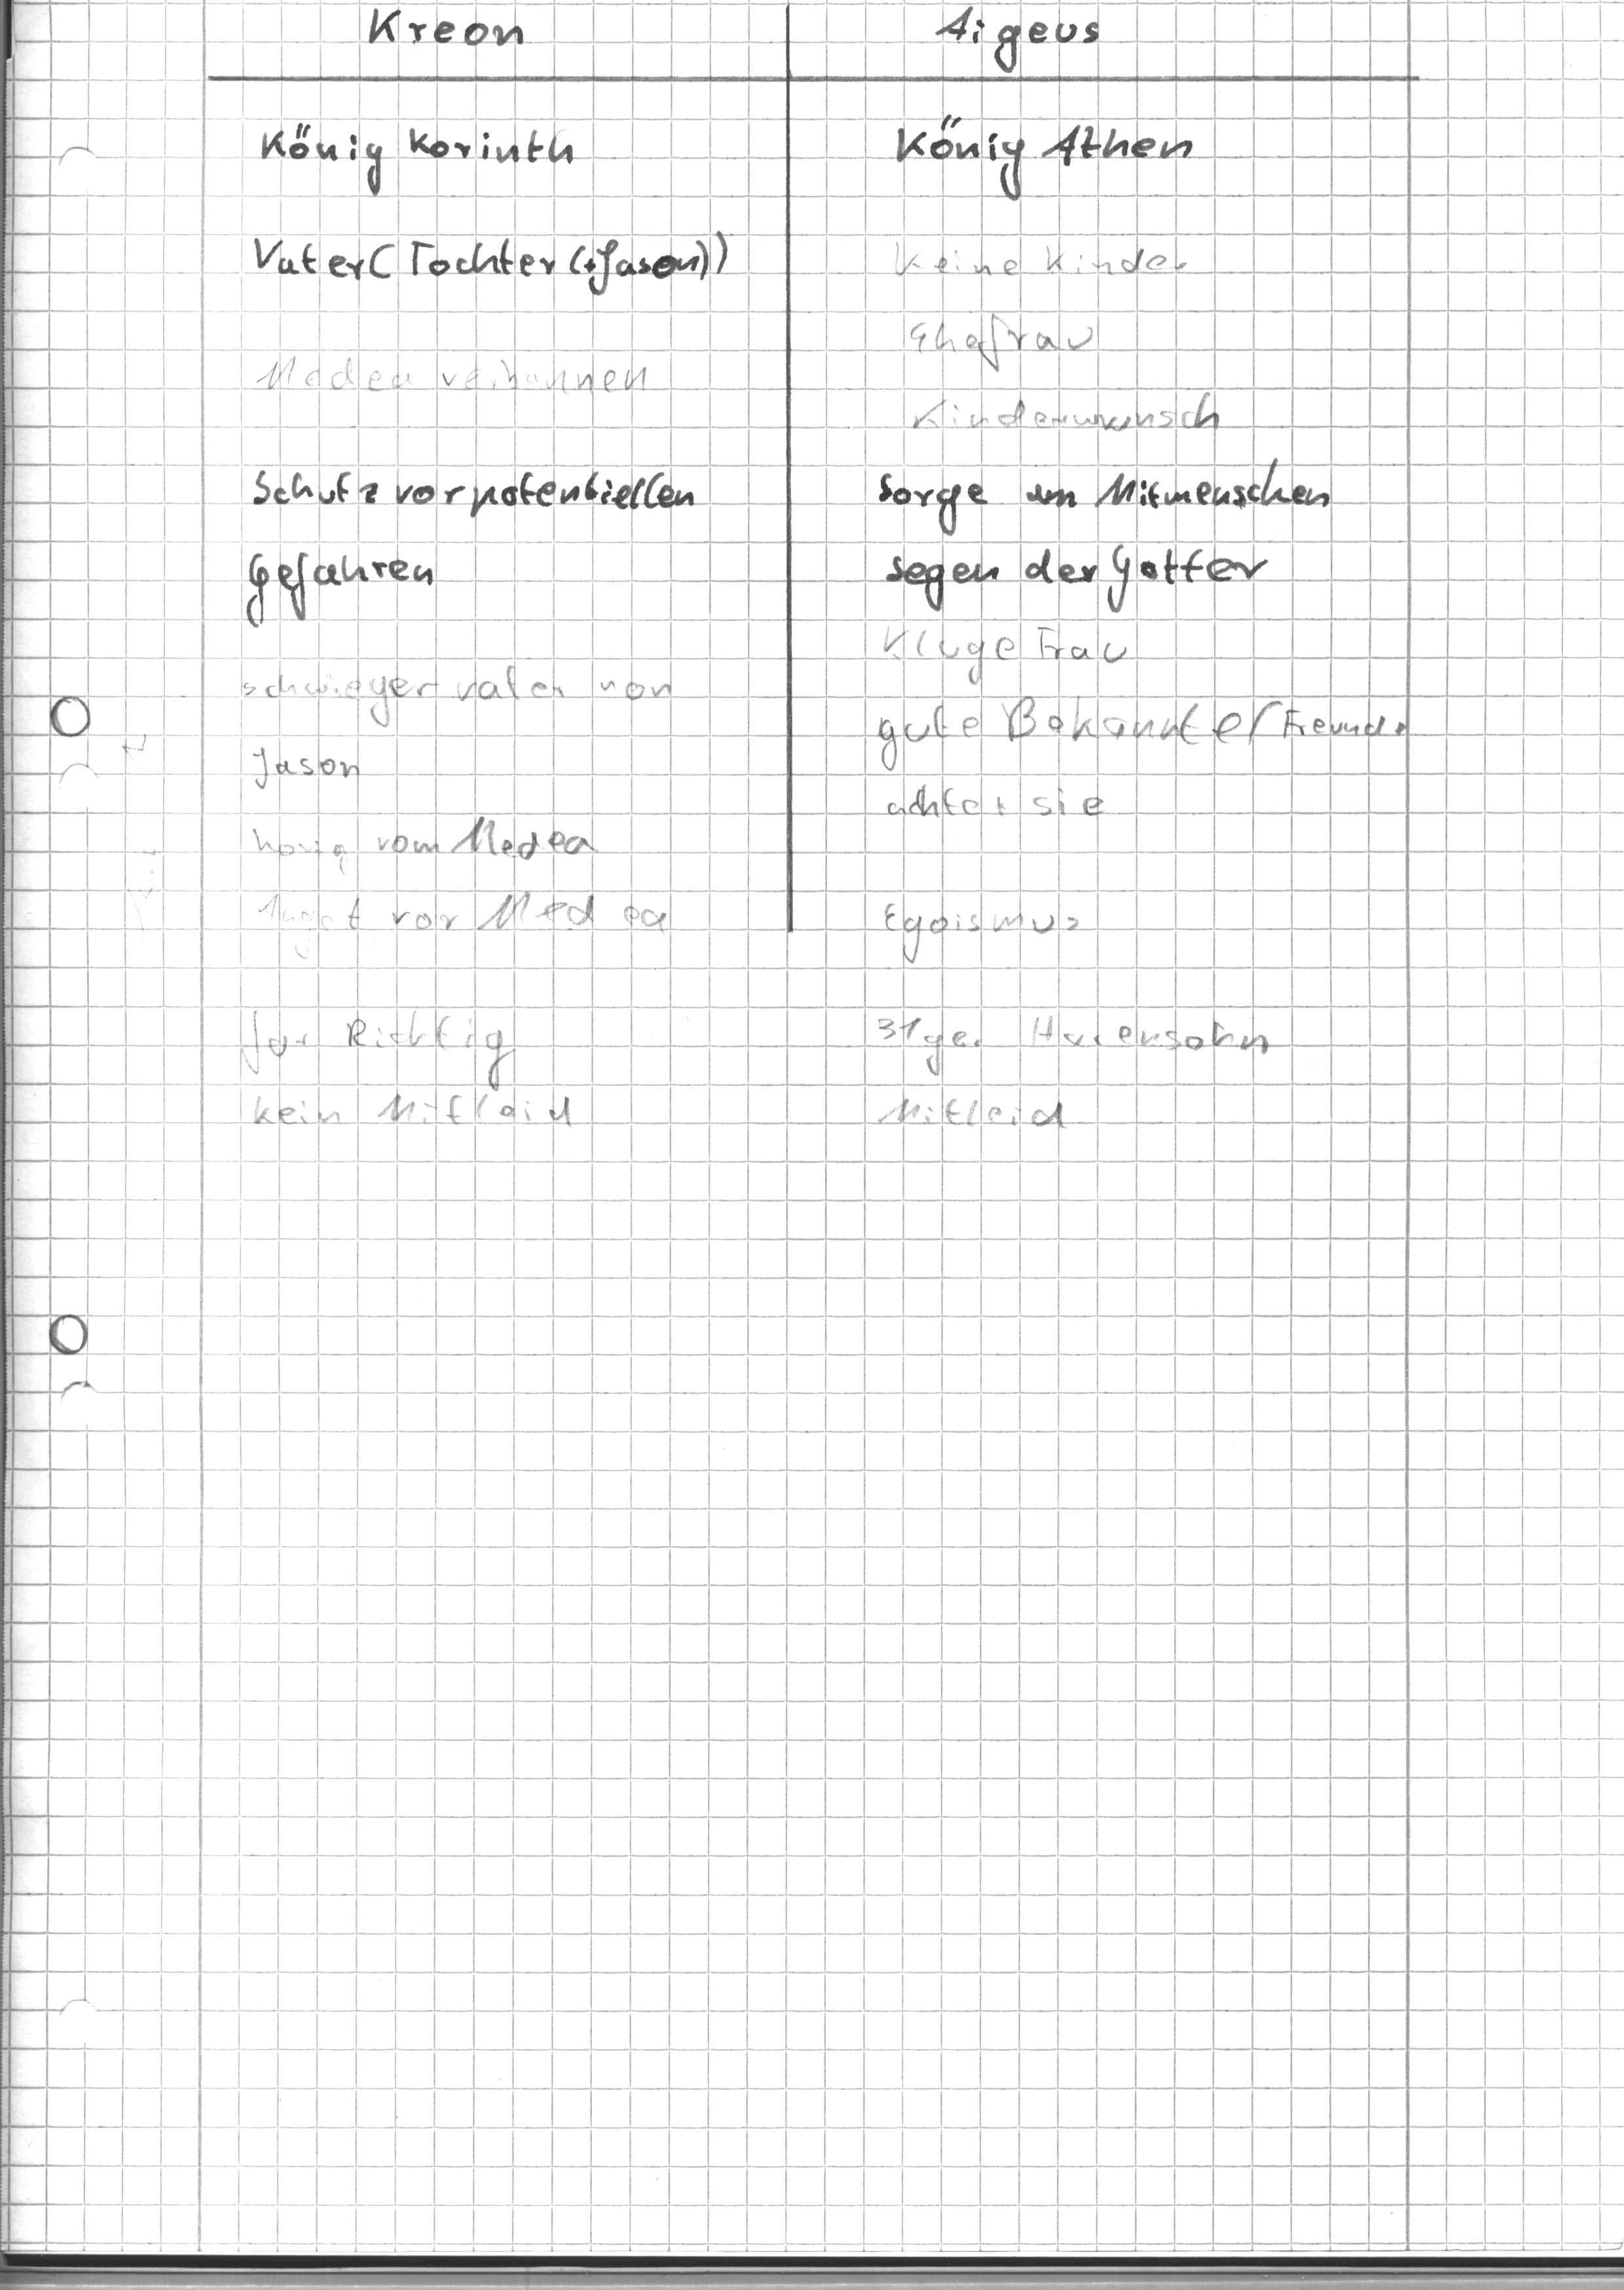 Kreon Aigeus
König Korinth König Athen
Vater (Tochter (+Jason)) Keine Kinder
Ehefrau
Medea verbannen
Kinderwunsch
Schutz vor potentiellen Sorge um Mitmenschen
Gefahren Segen der Götter
Kluge Frau
Schwiegervater von
gute Bekannte/Freunde
Jason
achtet sie
vom Medea
Angst vor Medea Egoismus
Richtig
kein Mitleid Mitleid